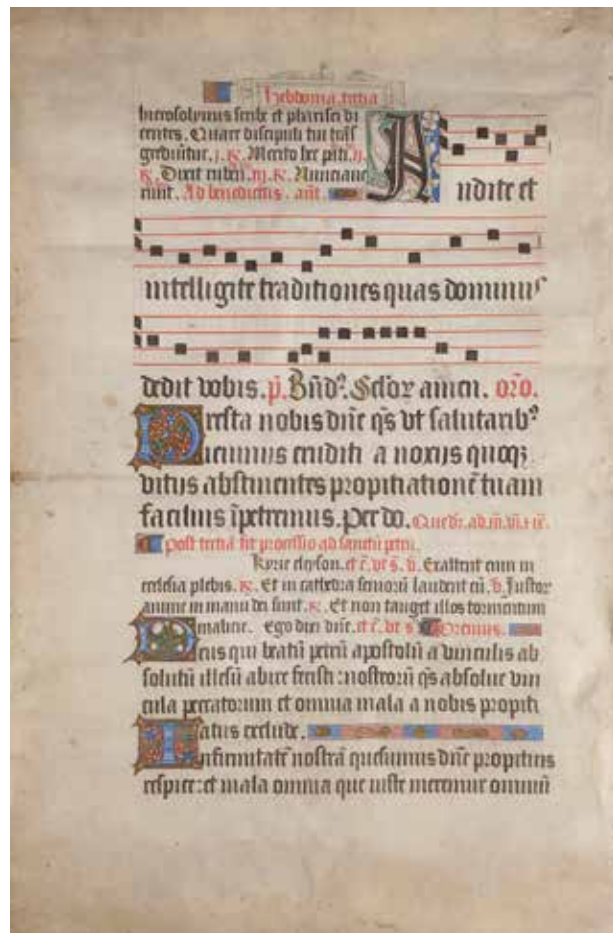 Hebdoma. tertia
hierosolymis scribe et pharisei di
centes. Quare discipuli tui trãs
grediũtur. j. ꝶ. Merito hec pati. ij.
ꝶ. Dixit ruben. iij. ꝶ. Nunciave
runt. Ad benedictus. añt.
Audite et
intelligite traditiones quas dominus
dedit vobis. p̃. Bñdꝰ. Sclo̅r amen. oro̅.
Presta nobis dñe q̃s vt salutaribꝰ
ieiuniis eruditi a noxijs quoqꝫ
vitijs abstinentes propitiationẽ tuam
facilius ĩpetremus. Per do.
Post tertiã fit processio ad sanctũ petrũ.
Kyrie eleyson. et c̃. vt s̃. v̄. Exaltent eum in
ecclesia plebis. ꝶ. Et in cathedra seniorũ laudent eũ. v̄. Justor
anime in manu dei sunt. ꝶ. Et non tanget illos tormentum
malicie. Ego dixi dñe. et c̃. vt s̃. Oremus.
Deus qui beatũ petrũ apostolũ a vinculis ab
solutũ illesũ abire fecisti: nostrorũ q̃s absolue vin
cula peccatorum et omnia mala a nobis propiti
atus exclude.
Infirmitatẽ nostrã quesumus dñe propitius
respice: et mala omnia que iuste meremur omniũ